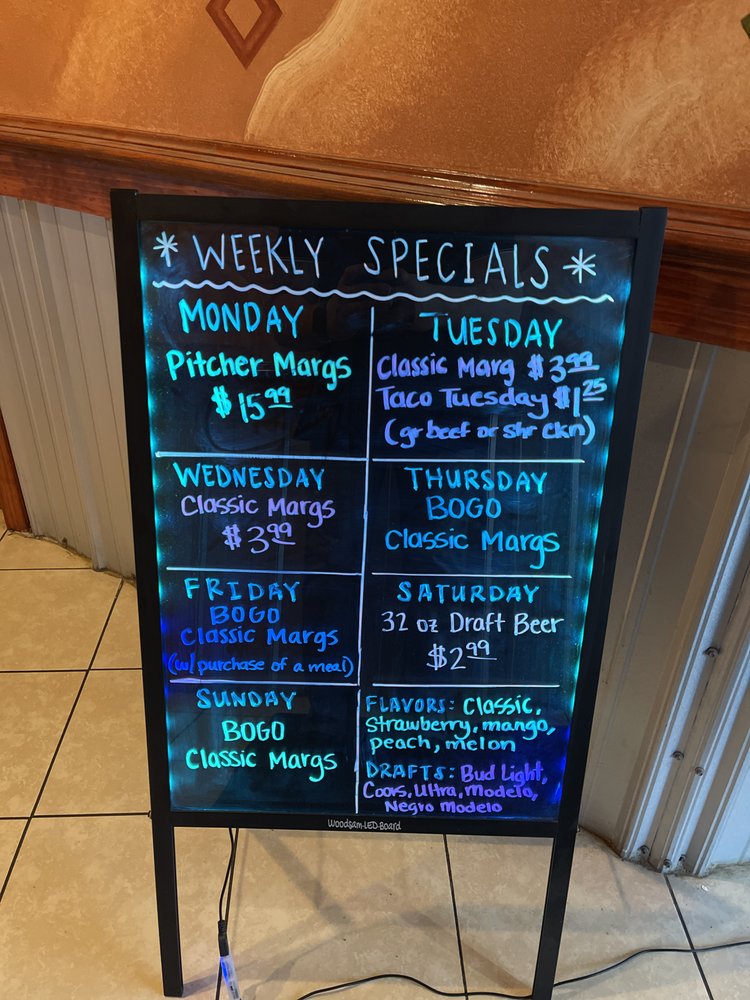 * WEEKLY SPECIALS *
MONDAY
Pitcher Margs
$15.99
TUESDAY
Classic Marg $3.99
Taco Tuesday $1.25
(gr beef or shr ckn)
WEDNESDAY
Classic Margs
$3.99
THURSDAY
BOGO
Classic Margs
FRIDAY
BOGO
Classic Margs
(w/purchase of a meal)
SATURDAY
32 oz Draft Beer
$2.99
SUNDAY
BOGO
Classic Margs
FLAVORS: Classic,
Strawberry, mango,
peach, melon
DRAFTS: Bud Light,
Coors, Ultra, Modelo,
Negro Modelo
Woodsam-LED-Board